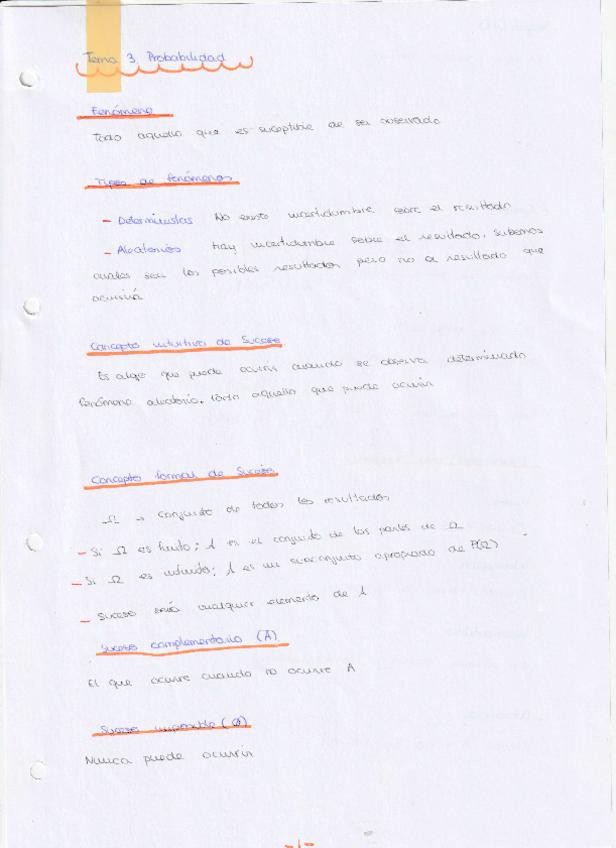 Tema 3 Probabilidad
Fenómeno
Todo aquello que es suceptible de ser observado
Tipos de fenómenos
- Deterministas No existe incertidumbre sobre el resultado
- Aleatorios hay incertidumbre sobre el resultado, sabemos
cuales son los posibles resultados pero no el resultado que
ocurrirá
Concepto intuitivo de Suceso
Es algo que puede ocurrir cuando se observa determinado
fenómeno aleatorio. Todo aquello que puede ocurrir
Concepto formal de Suceso
Ω → conjunto de todos los resultados
- Si Ω es finito; A es el conjunto de las partes de Ω
- Si Ω es infinito; A es un subconjunto apropiado de P(Ω)
- Suceso será cualquier elemento de A
Suceso complementario (A)
El que ocurre cuando no ocurre A
Suceso imposible (Ø)
Nunca puede ocurrir
-1-